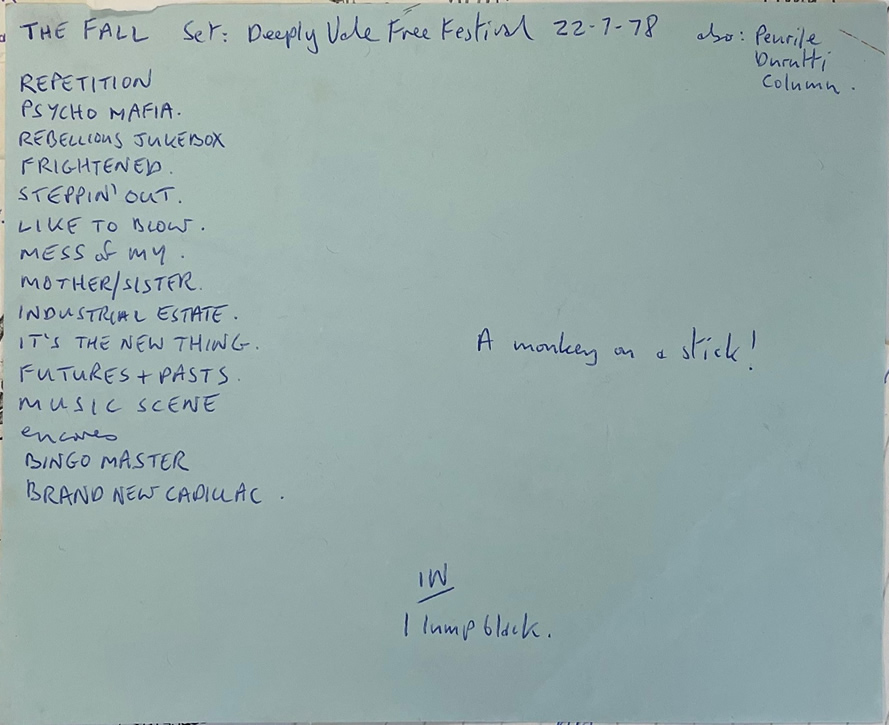 THE FALL Set: Deeply Vale Free Festival 22-7-78
also: Penrite
Durutti
Column.
REPETITION
PSYCHO MAFIA.
REBELLIOUS JUKEBOX
FRIGHTENED.
STEPPIN' OUT.
LIKE TO BLOW.
MESS of MY.
MOTHER/SISTER.
INDUSTRIAL ESTATE.
IT'S THE NEW THING.
FUTURES + PASTS.
MUSIC SCENE
encores
BINGO MASTER
BRAND NEW CADILLAC.
A monkey on a stick!
IW
1 lump black.